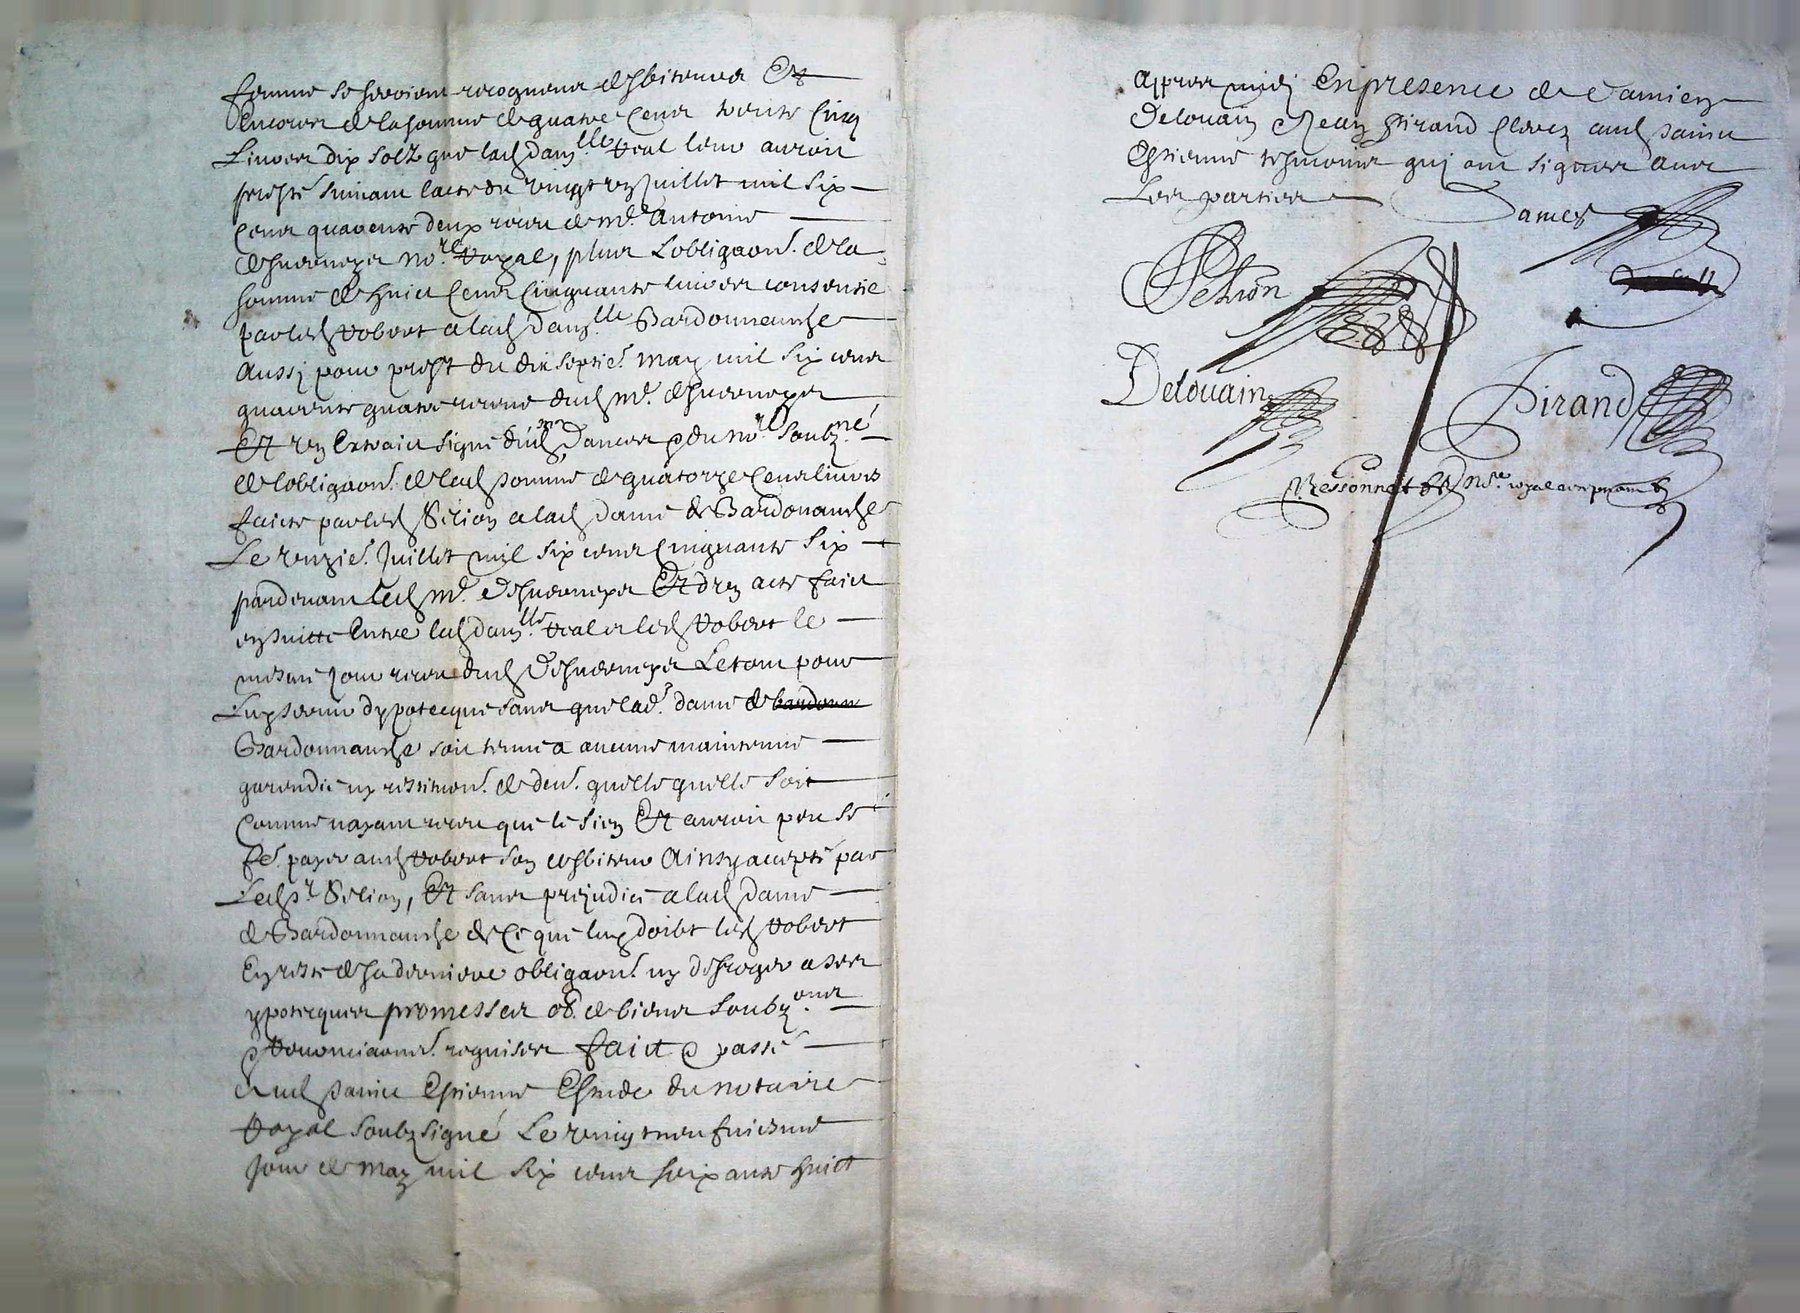 femme se seroient recogneus debiteurs Et
Encores de la somme de quatre Cens trente Cinq
Livres dix solz que lad damlle Real leur auroit
presté suivant l'acte du vingt un Juillet mil six
Cens quarente deux receu de Me Antoine
no.re Royal, plus L'obligaon. de la
somme de huict Cens Cinquante livres consentie
par led Robert a lad damlle Bardonnanche
Aussy pour prest du dix septie. May mil six cens
quarente quatre receue dud Me.
Et un Extraict signé dud dances & du no.re soubz.né
de l'obligaon. de lad somme de quatorze Cens livres
faicte par led Silion a lad dame de Bardonanche
Le unzie. Juillet mil six cens Cinquante six
pardevant led Me. Et d'un acte faict
en suitte Entre lad damlle Real et led Robert le
mesme Jour receu dud Le tout pour
luy servir d'ypotecque sans que lad. dame de bardonn
Bardonnanche soit tenue a aucune maintenue
garendie ny restituon. de den. quelle quelle soit
Comme n'ayant receu que le sien Et auroit peu se
fe. payer aud Robert son debiteur Ainsy accepté par
Led sr Silion, Et sans prejudice a lad dame
de Bardonnanche de Ce que luy doibt led Robert
En reste de sa derniere obligaon. ny desroger a ses
ypotecques promesses ob. de biens soubz.ons
& Renonciaons. requises faict & passé
Aud Sainct Estienne Estude du notaire
Royal soubzsigné Le vingt neufviesme
Jour de May mil six cens soixante huict
Appres midy En presence de Damien
Delouain & Jean Pirand Clercz aud Sainct
Estienne tesmoins quy ont signés avec
Les parties
Dances
Silion
Delouain
Pirand
no.re royal